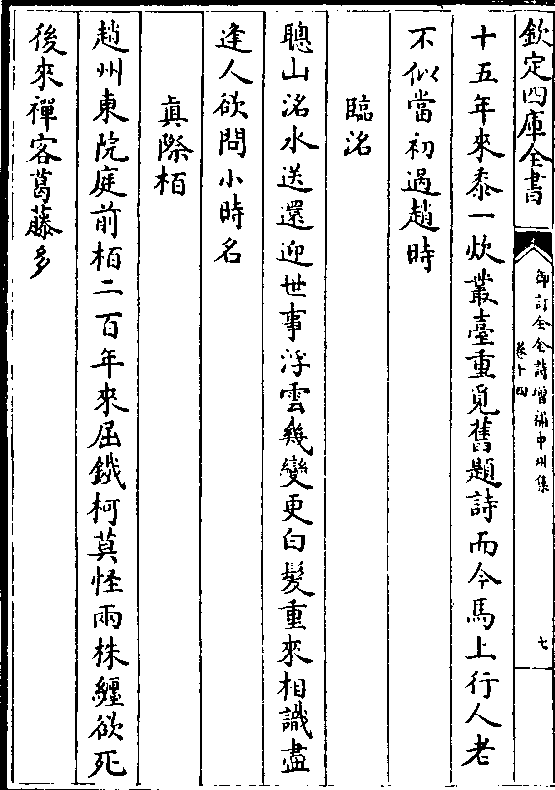 欽定四庫全書
御訂全金詩增補中州集
卷十四
七
十五年來黍一炊叢臺重覓舊題詩而今馬上行人老
不似當初過趙時
臨洺
聰山洺水送還迎世事浮雲幾變更白髮重來相識盡
逢人欲問小時名
真際柏
趙州東院庭前柏二百年來屈鐵柯莫怪兩株纏欲死
後來禪客葛藤多